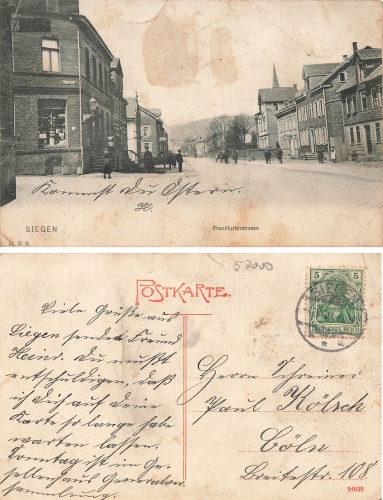 SIEGEN
Frankfurterstrasse
Kommst Du Ostern.
H.
POSTKARTE.
57000
5 5
DEUTSCHES REICH
Viele Grüße aus
Siegen sendet Freund
Heini. Du mußt
entschuldigen, daß
ich Dich auf deine
Karte so lange habe
warten lassen.
Sonntag ist im Ge-
sellenhaus General-
sammlung.
Herrn Schreiner
Paul Kölsch
Cöln
Breitestr 108